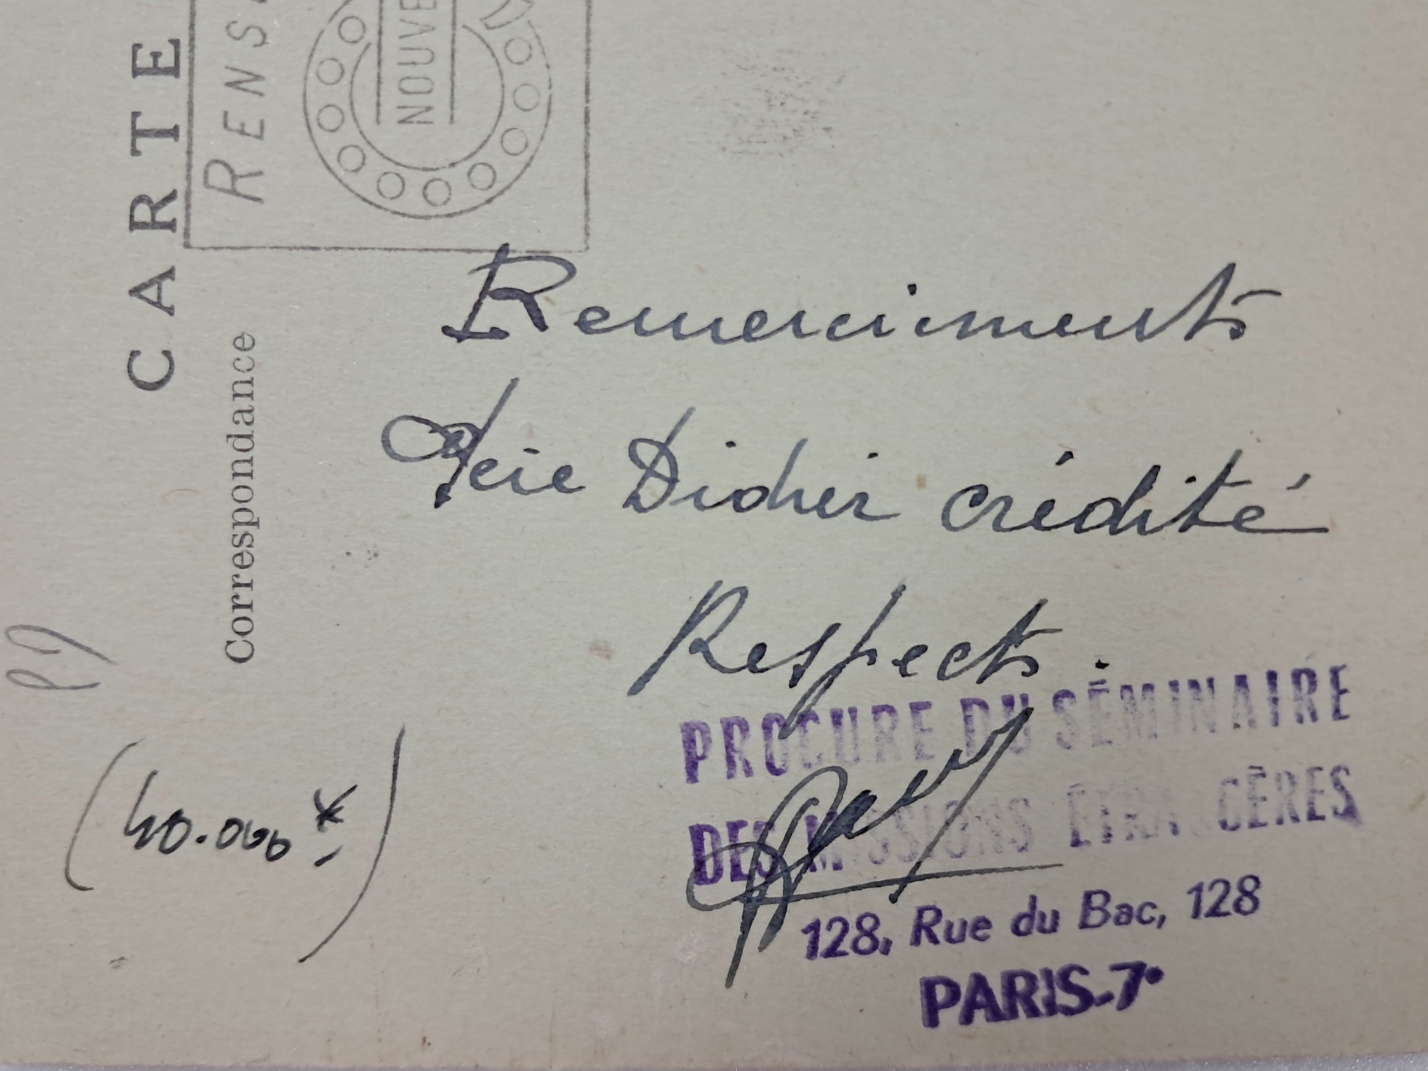 CARTE
Correspondance
RENS
NOUVE
Remerciments
Père Didier crédité
Respects.
PROCURE DU SÉMINAIRE
DES MISSIONS ÉTRANGÈRES
128, Rue du Bac, 128
PARIS-7e
(40.000